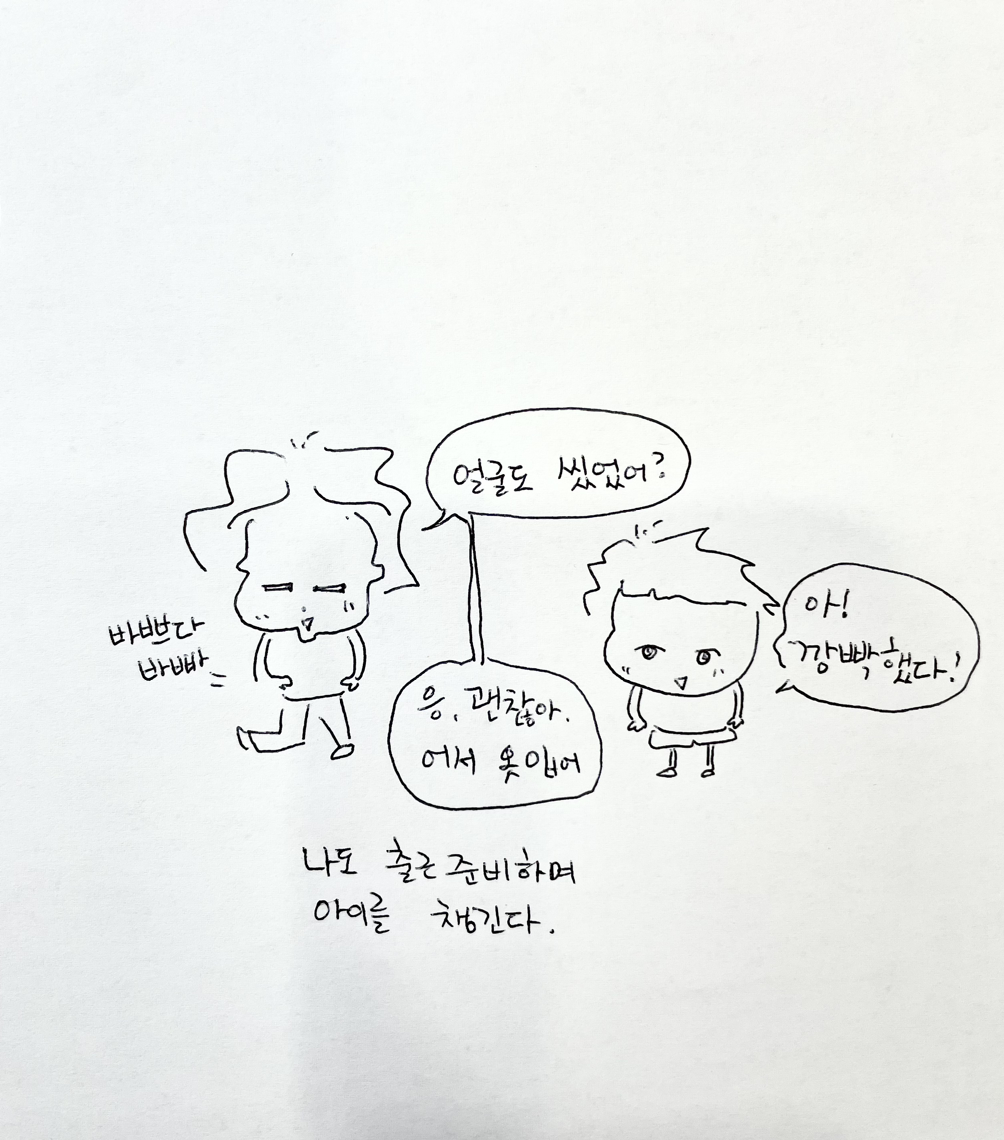 얼굴도 씻었어?
아!
깜빡했다!
바쁘다
바빠
응, 괜찮아.
어서 옷입어
나도 출근 준비하며
아이를 챙긴다.